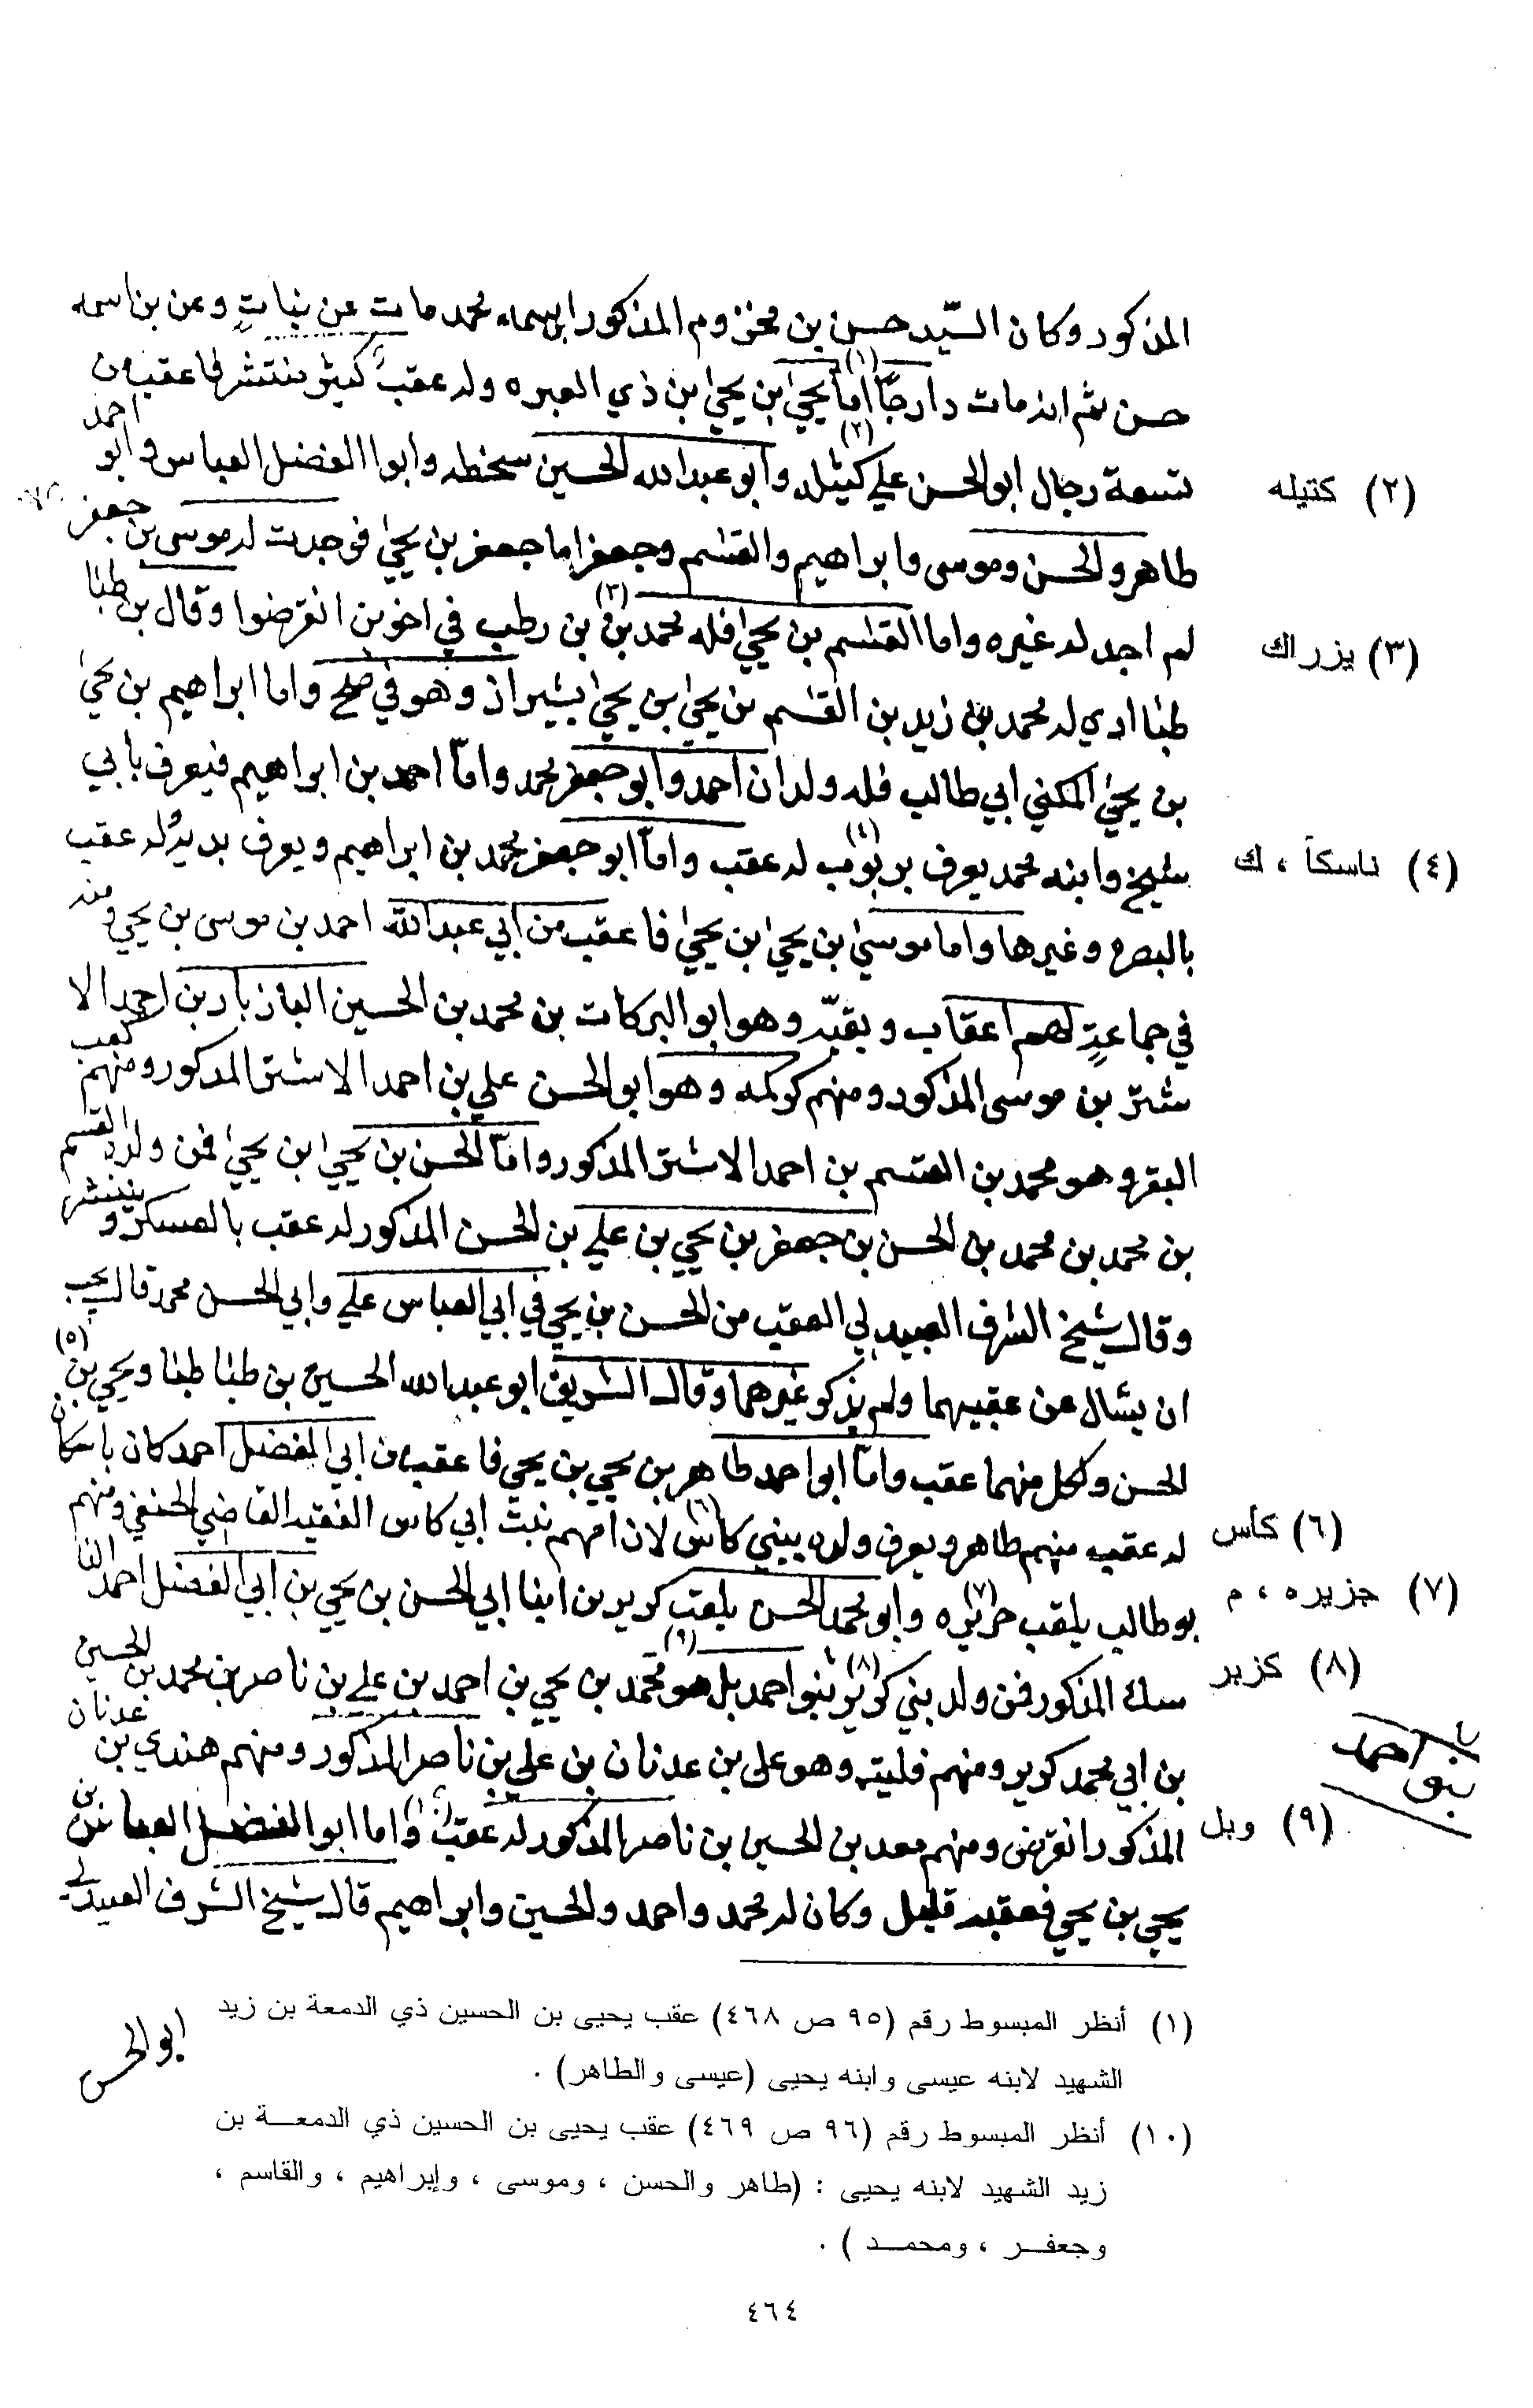 المذكور وكان السّيد حسن بن مخزوم المذكور ابن سماه محمد مات عن بنات وعن بن اسمه
حسن ثم انه مات دارجًا (١) اما يحيى ابن يحيى ابن ذي العبره وله عقب كثير منتشر فاعقب من
تسعة رجال ابو الحسن علي كتيله (٢) وابو عبد الله الحسين سخطه وابو الفضل العباس وابو احمد
طاهر والحسن وموسى وابراهيم والقسم وجعفر اما جعفر بن يحيى فوجدت له موسى بن جعفر
لم اجد له غيره واما القسم بن يحيى فله محمد بن (٣) بن رطب في اخوين انقرضوا وقال بن طبا
طبا ادي له محمد بن زيد بن القسم بن يحيى بن يحيى بشيراز وهو في صلح واما ابراهيم بن يحيى
بن يحيى المكنى ابي طالب فله ولدان احمد وابو جعفر محمد وامّا احمد بن ابراهيم فيعرف بابي
شيخ وابنه محمد يعرف (٤) له عقب وامّا ابو جعفر محمد بن ابراهيم ويعرف له عقب
بالبصره وغيرها واما موسى بن يحيى بن يحيى فاعقب من ابي عبد الله احمد بن موسى بن يحيى ومنه
في جماعةٍ لهم اعقاب وبقيّه وهو ابو البركات بن محمد بن الحسين البازبار بن احمد الا
شتر بن موسى المذكور ومنهم كوكمه وهو ابو الحسن علي بن احمد الاشتر المذكور ومنهم كعب
البقر وهو محمد بن القسم بن احمد الاشتر المذكور وامّا الحسن بن يحيى ابن يحيى فمن ولده القسم
بن محمد بن محمد بن الحسن بن جعفر بن يحيى بن علي بن الحسن المذكور له عقب بالعسكر وينتشر
وقال شيخ الشرف العبيدلي العقب من الحسن بن يحيى في ابي العباس علي وابي الحسن محمد قال يجب
ان يسال عن عقبهما ولم يذكر غيرهما وقال الشريف ابو عبد الله الحسين بن طبا طبا ويحيى بن (٥)
الحسن ولكل منهما عقب وامّا ابو احمد طاهر بن يحيى بن يحيى فاعقب من ابي الفضل احمد كان باسكان
له عقب منهم طاهر ويعرف ولده ببني كاس (٦) لان امهم بنت ابي كاس الفقيه القاضي الحنفي ومنهم
بو طالب يلقب (٧) وابو محمد الحسن يلقب كوير بن ابنا ابي الحسن بن يحيى بن ابي الفضل احمد النا
سك المذكور فمن ولد بني كوير (٨) بنو احمد بل هو (٩) محمد بن يحيى بن احمد بن علي بن ناصر بن محمد بن الحسين
بن ابي محمد كوير ومنهم فليته وهو علي بن عدنان بن علي بن ناصر المذكور ومنهم هندي بن عدنان
المذكور انقرض ومنهم معد بن الحسين بن ناصر المذكور له عقب (١٠) واما ابو الفضل العباس بن
يحيى بن يحيى فعقبه قليل وكان له محمد واحمد والحسين وابراهيم قال شيخ الشرف العبيدلي
ابو الحسن
(٢) كتيله
(٣) يزراك
(٤) ناسكاً ، ك
(٦) كأس
(٧) جزيره ، م
(٨) كزير
بنو احمد
(٩) وبل
(١) أنظر المبسوط رقم (٩٥ ص ٤٦٨) عقب يحيى بن الحسين ذي الدمعة بن زيد
الشهيد لابنه عيسى وابنه يحيى (عيسى والطاهر) .
(١٠) أنظر المبسوط رقم (٩٦ ص ٤٦٩) عقب يحيى بن الحسين ذي الدمعـــة بن
زيد الشهيد لابنه يحيى : (طاهر والحسن ، وموسى ، وإبراهيم ، والقاسم ،
وجعفــر ، ومحمــد ) .
٤٦٤